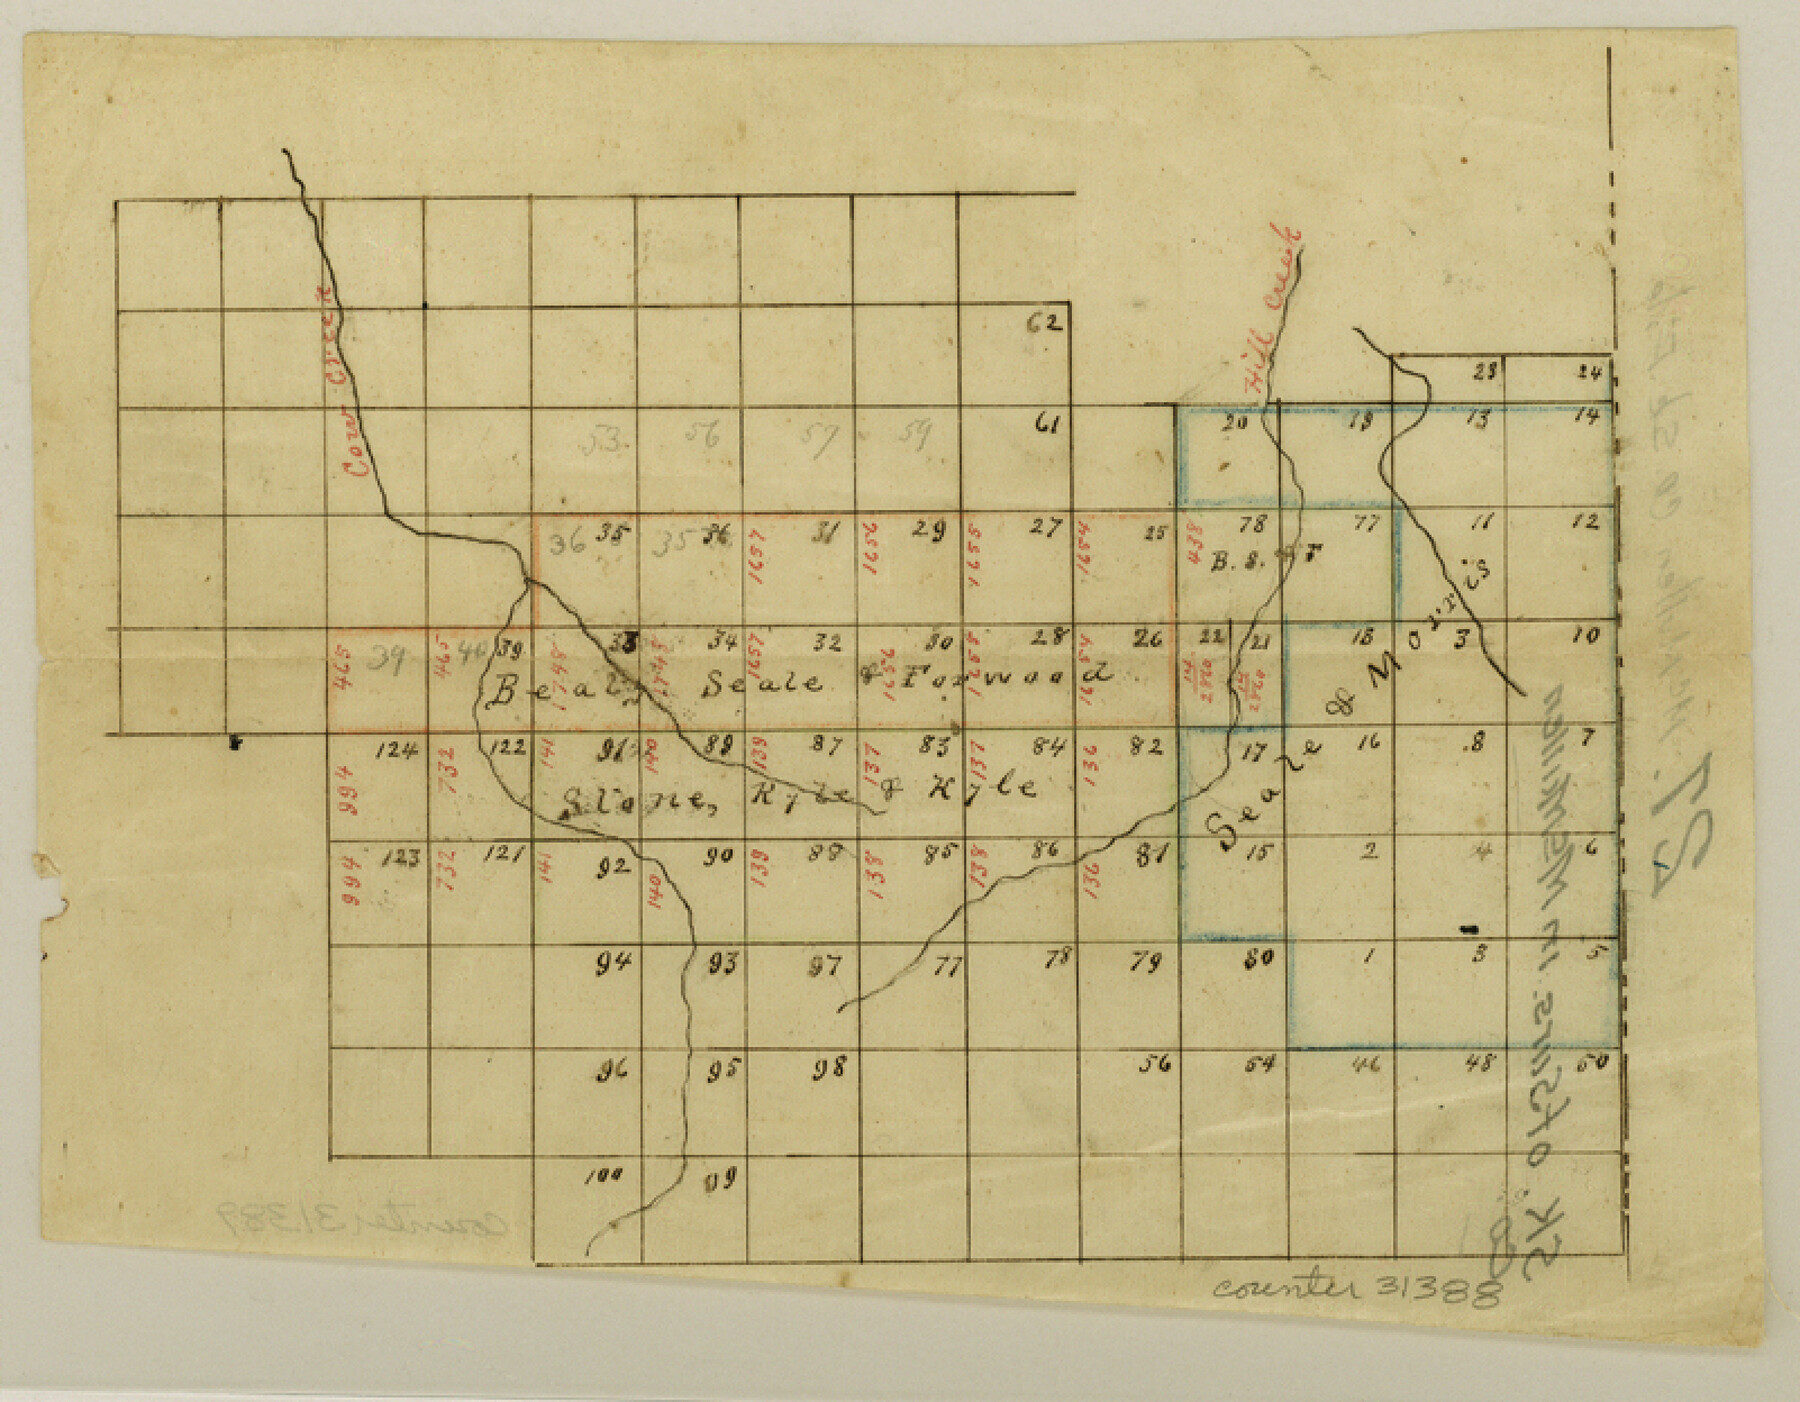 Cow Creek
Hill Creek
62
23 24
53 56 57 59 61 20 19 13 14
36 35 35 36 1657 31 1656 29 1655 27 1654 25 438 78 77 11 12
B. S. & F
465 39 465 40 39 1748 33 34 1657 32 1656 30 1655 28 1654 26 22 21 18 3 10
14
2860
14
2860
Beaty Seale & Forwood
Seale & Morris
994 124 732 122 141 91 140 89 139 87 137 83 137 84 136 82 17 16 8 7
Stone, Kyle & Kyle
994 123 732 121 141 92 140 90 139 88 138 85 138 86 136 81 15 2 4 6
94 93 97 77 78 79 80 1 3 5
96 95 98 56 54 46 48 50
100 99
counter 31389
counter 31388
Sk. of Sms. in Newman
8